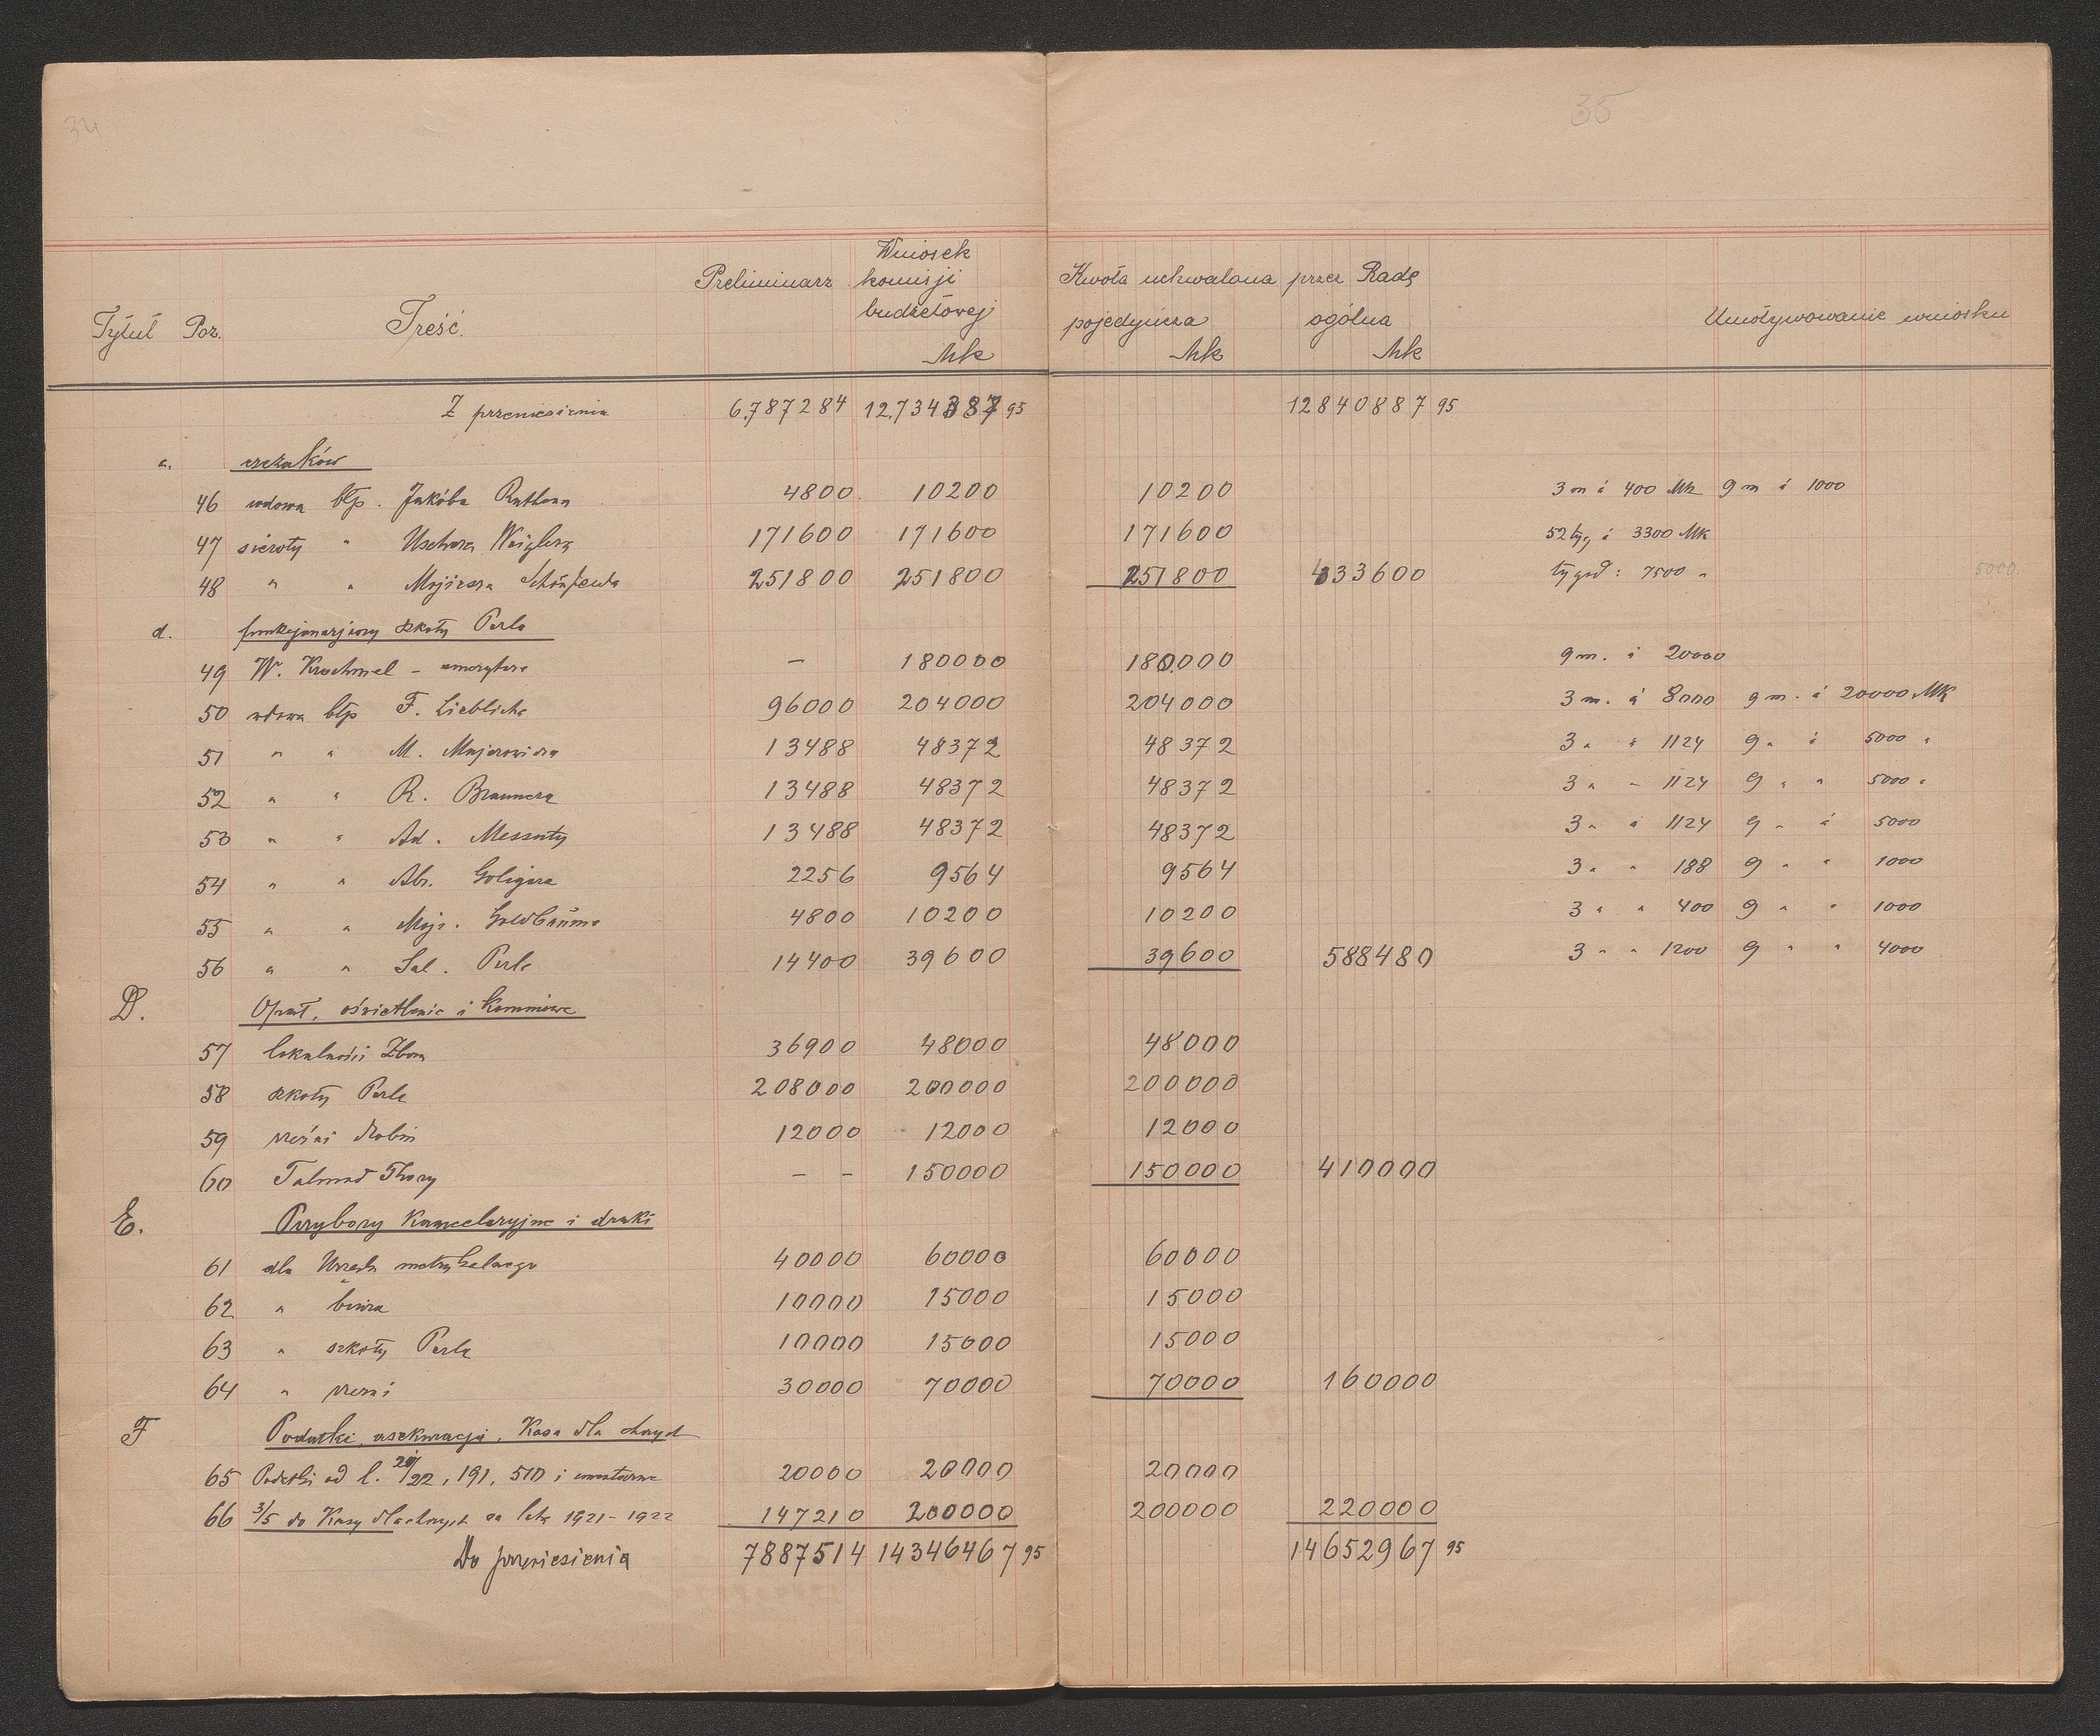 34
35
Tytuł Poz. Treść. Preliminarz Wniosek komisji budżetowej Mk Kwota uchwalona przez Radę pojedyńcza Mk ogólna Mk Umotywowanie wniosku
Z przeniesienia 6.787284 12.734387 95 12840887 95
c. rzezaków
46 wdowa błp. Jakóba 4800 10200 10200 3 m á 400 Mk 9 m á 1000
47 sieroty " Uschera Weiglera 171600 171600 171600 52 tyg á 3300 Mk
48 " " Mojżesza Schönfelda 251800 251800 251800 433600 tygod: 7500 " 5000
d. funkcjonarjuszy szkoły Perla
49 W. Krochmal - emerytura — 180000 180.000 9 m. á 20000
50 wdowa błp F. Lieblicha 96000 204000 204000 3 m. á 8000 9 m. á 20000 Mk
51 " " M. Majerowicza 13488 48372 48372 3 " á 1124 9 " á 5000 "
52 " " R. Braunera 13488 48372 48372 3 " " 1124 9 " " 5000 "
53 " " Ad. 13488 48372 48372 3 " á 1124 9 " á 5000
54 " " Abr. Goligera 2256 9564 9564 3 " " 188 9 " " 1000
55 " " Mojż. Goldbauma 4800 10200 10200 3 " " 400 9 " " 1000
56 " " Sal. Perla 14400 39600 39600 588480 3 " " 1200 9 " " 4000
D. Opał, oświetlenie i
57 lokalności Zboru 36900 48000 48000
58 szkoły Perla 208000 200000 200000
59 rzeźni drobiu 12000 12000 12000
60 Talmud Thory — — 150000 150000 410000
E. Przybory kancelaryjne i druki
61 dla Urzędu metrykalnego 40000 60000 60000
62 " biura 10000 15000 15000
63 " szkoły Perla 10000 15000 15000
64 " rzezni 30000 70000 70000 160000
F Podatki, asekuracja, Kasa dla chorych
65 Podatki od l. 20/22, 191, 510 i 20000 20000 20000
66 3/5 do Kasy dla chorych za lata 1921-1922 147210 200000 200000 220000
Do przeniesienia 7887514 14346467 95 14652967 95